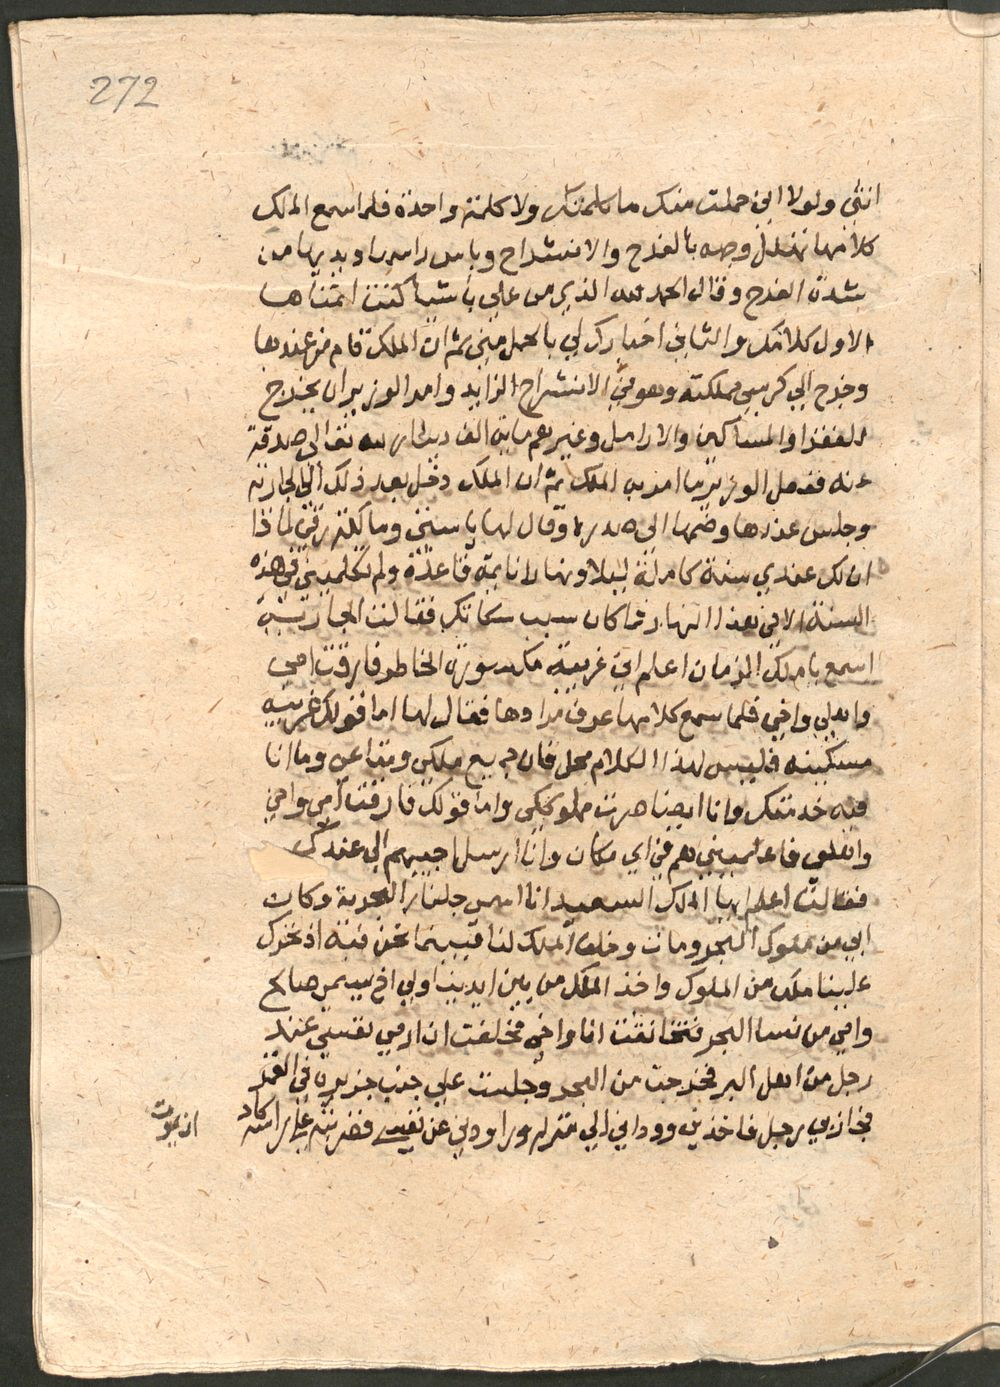 272
انثي ولولا اني حملت منك ما كلمتك ولا كلمة واحدة فلما سمع الملك
كلامها تهلل وجهه بالفرح والانشراح وباس راسها ويديها من
شدة الفرح وقال الحمد لله الذي من علي باشيا كنت اتمناها
الاول كلامك والثاني اخبارك لي بالحمل مني ثم ان الملك قام من عندها
وخرج الي كرسي مملكته وهو في الانشراح الزايد وامر الوزير ان يخرج
للفقرا والمساكين والارامل وغيرهم ماية الف دينار لله تعالى صدقة
عنه ففعل الوزير ما امر به الملك ثم ان الملك دخل بعد ذلك الي الجارية
وجلس عندها وضمها الي صدره وقال لها يا ستي وما لكة رقي لماذا
ان لك عندي سنة كاملة ليلا ونهارا نايمة قاعدة ولم تكلميني في هذه
السنة الا في هذا النهار فما كان سبب سكاتك فقالت الجارية
اسمع يا ملك الزمان اعلم اني غريبة مكسورة الخاطر فارقت امي
واهلي واخي فلما سمع كلامها عرف مرادها فقال لها اما قولك غريبه
مسكينه فليس لهذا الكلام محل فان جميع ملكي ومتاعي وما انا
فيه خدمتك وانا ايضا صرت مملوككي واما قولك فارقت امي واخي
واهلي فاعلميني هم في اي مكان وانا ارسل اجيبهم الي عندك
فقالت اعلم ايها الملك السعيد انا اسمي جلنار البحرية وكان
ابي من ملوك البحر ومات وخلف الملك لنا فبينما نحن فيه اذ تحرك
علينا ملك من الملوك واخذ الملك من بين ايدينا ولي اخ يسمي صالح
وامي من نسا البحر فتخانقت انا واخي فحلفت ان ارمي نفسي عند
رجل من اهل البر فخرجت من البحر وجلست علي جنب جزيرة في القمر
فجاز بي رجل فاخذني ووداني الي منزله وراودني عن نفسي فضربته علي راسه كاد
ان يموت